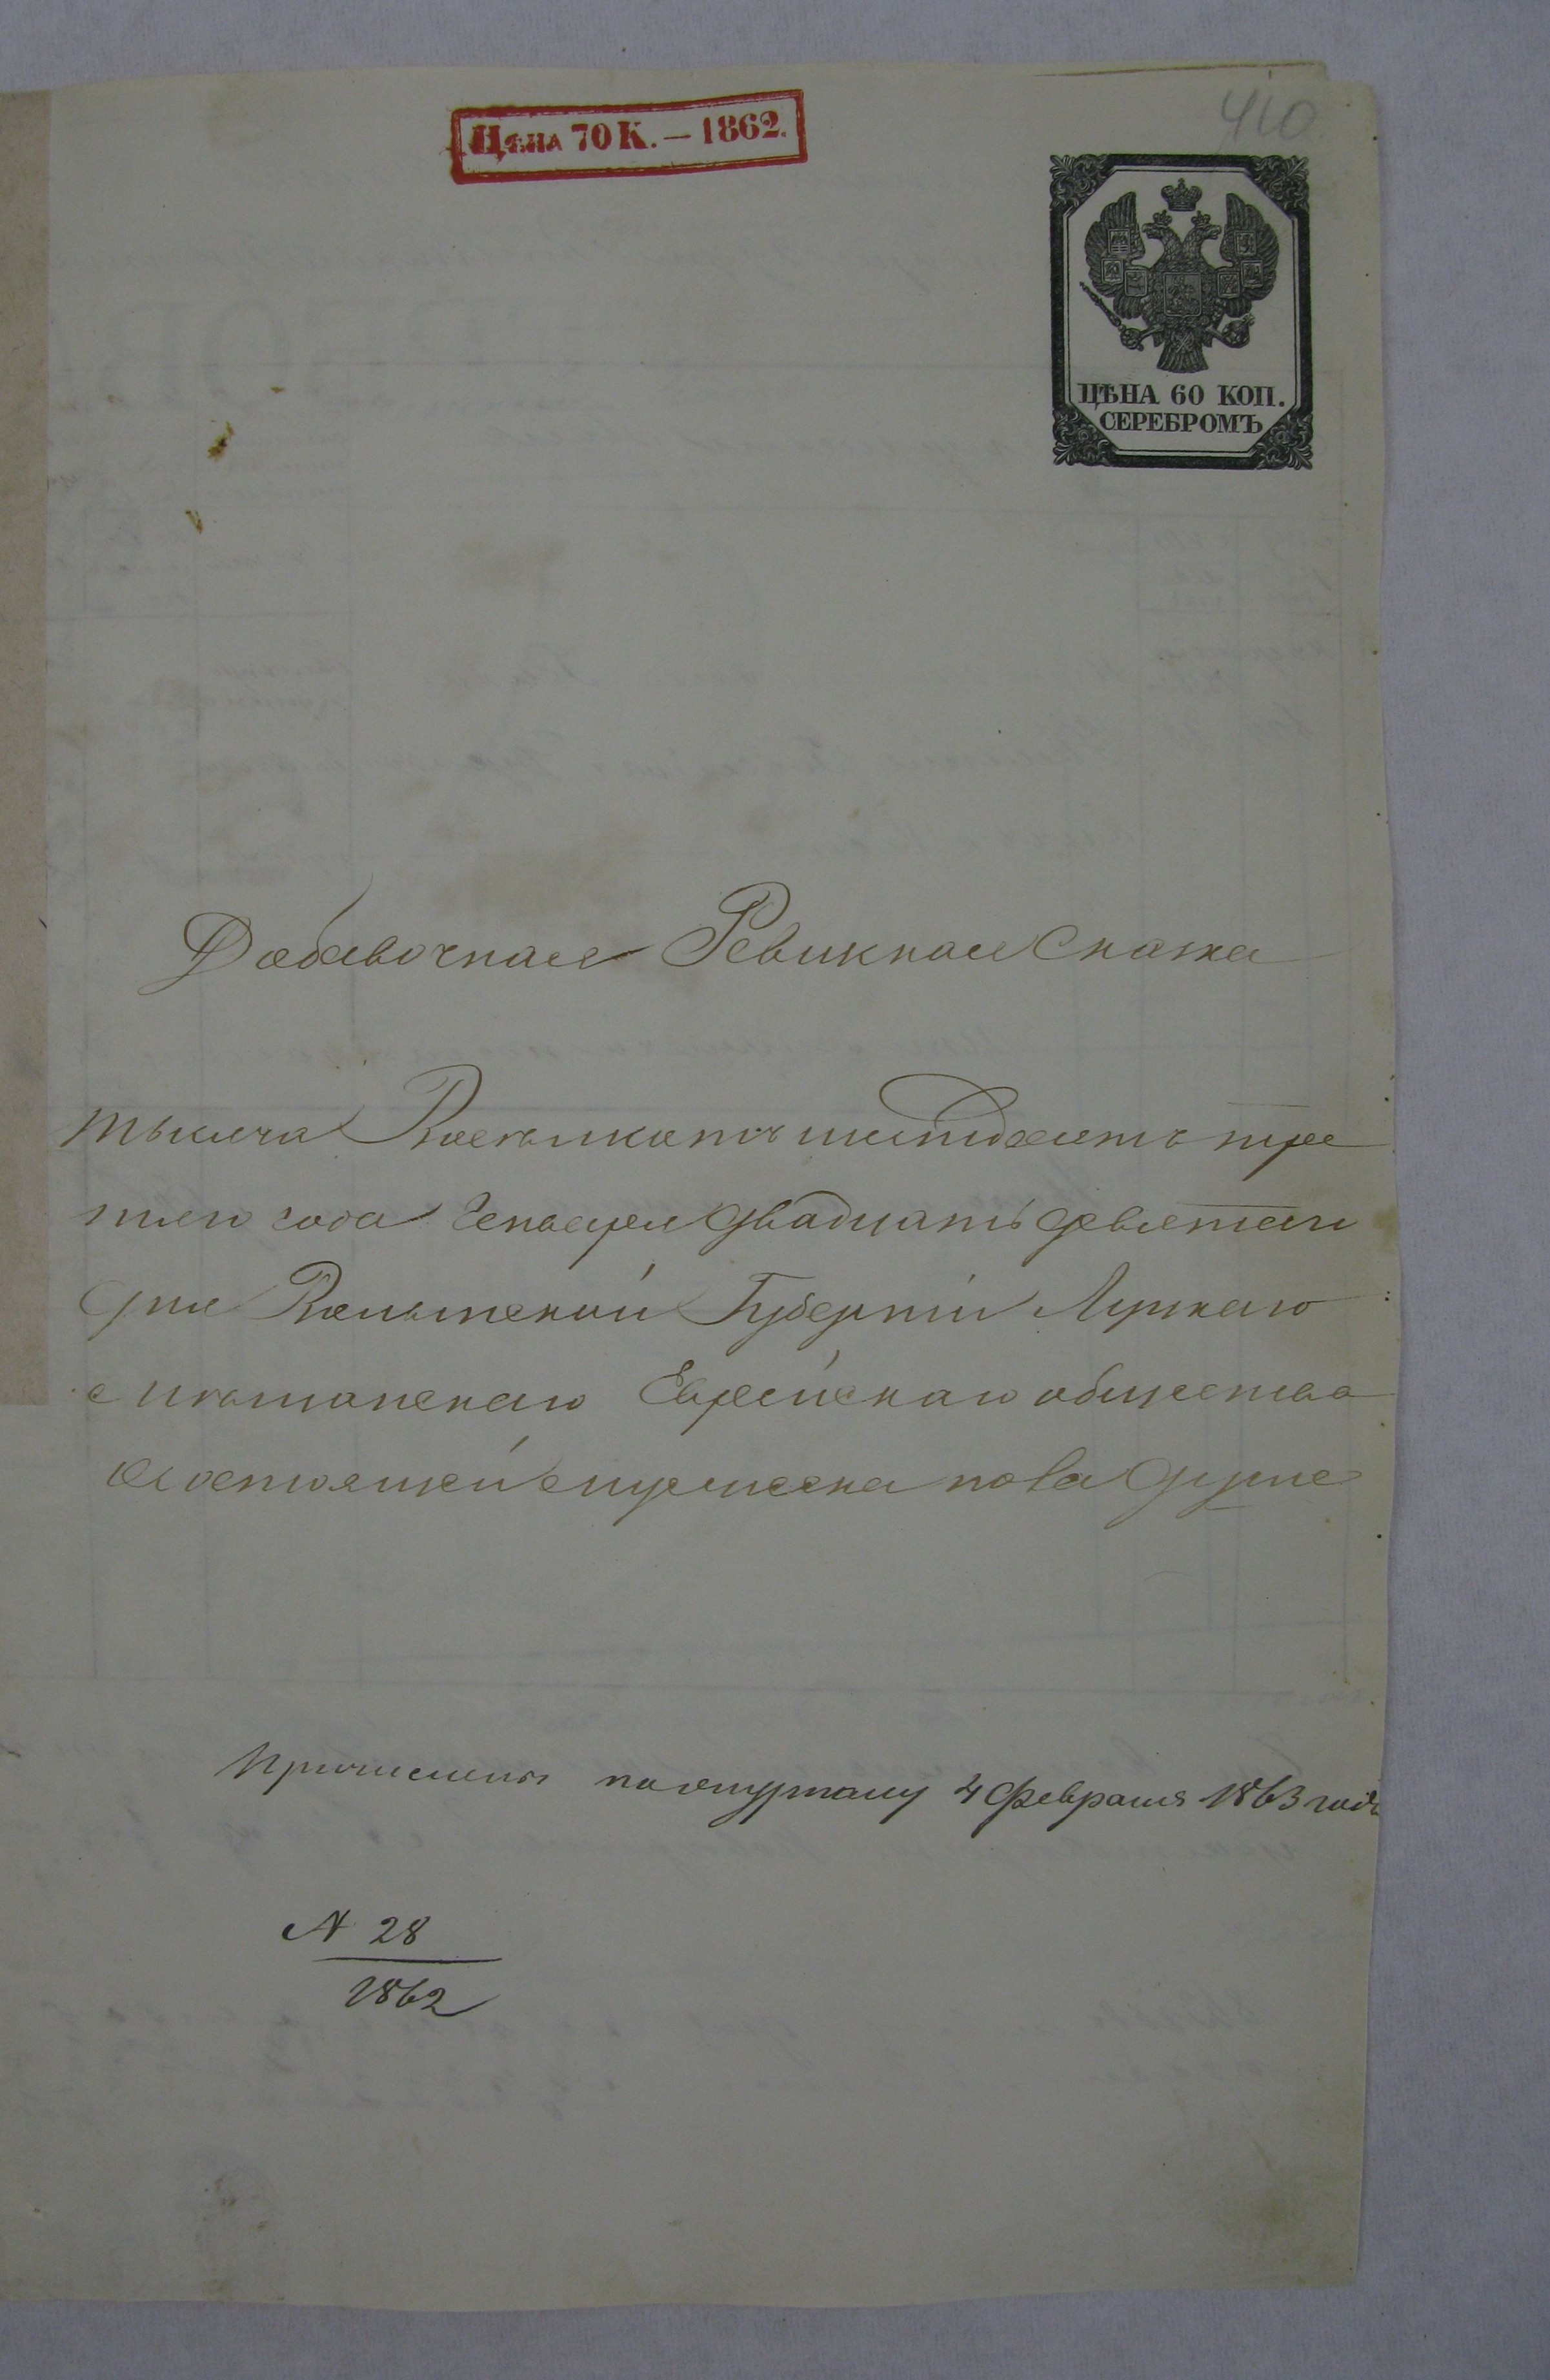 410
Цѣна 70 К. — 1862.
ЦѢНА 60 КОП.
СЕРЕБРОМЪ
Добавочная Ревизкая Сказка
тысяча Восемьсотъ шестдесятъ тре
тьего года Генваря двадцать девятого
дня Волынской Губерніи Луцкаго
мѣщанскаго Еврейскаго общества
состоящей
Причислены по окладу 4 Февраля 1863 года
N 28
1862